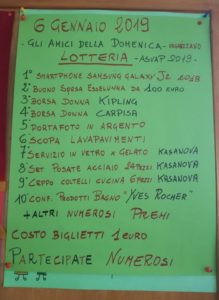 6 GENNAIO 2019
- GLI AMICI DELLA DOMENICA - ORGANIZZANO
LOTTERIA - ASVAP 2019 -
1° SMARTPHONE SAMSUNG GALAXY J2 2018
2° BUONO SPESA ESSELUNGA DA 100 EURO
3° BORSA DONNA KIPLING
4° BORSA DONNA CARPISA
5° PORTAFOTO IN ARGENTO
6° SCOPA LAVAPAVIMENTI
7° SERVIZIO IN VETRO X GELATO KASANOVA
8° SET POSATE ACCIAIO 24 PEZZI KASANOVA
9° CEPPO COLTELLI CUCINA 6 PEZZI KASANOVA
10° CONF. PRODOTTI BAGNO "YVES ROCHER"
+ ALTRI NUMEROSI PREMI
COSTO BIGLIETTI 1 EURO
PARTECIPATE NUMEROSI